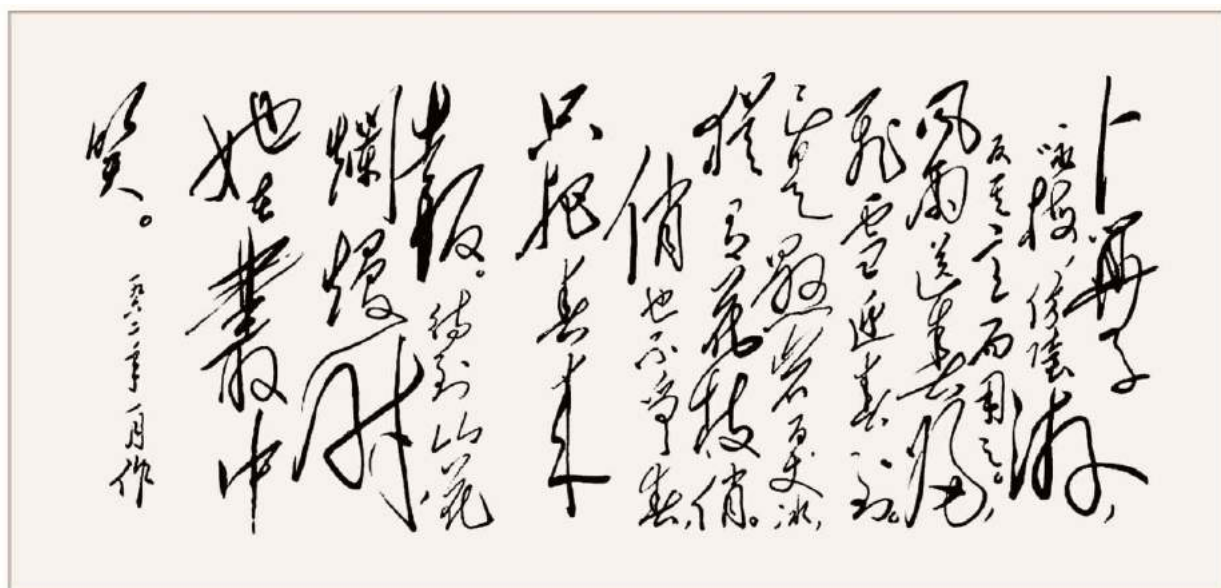 卜算子
咏梅，仿陸游，
反其意而用之。
風雨送春歸，
飛雪迎春到。
已是懸岩百丈冰，
猶有花枝俏。
俏也不爭春，
只把春來
報。待到山花
爛熳時
她在叢中
笑。
一九六二年一月作